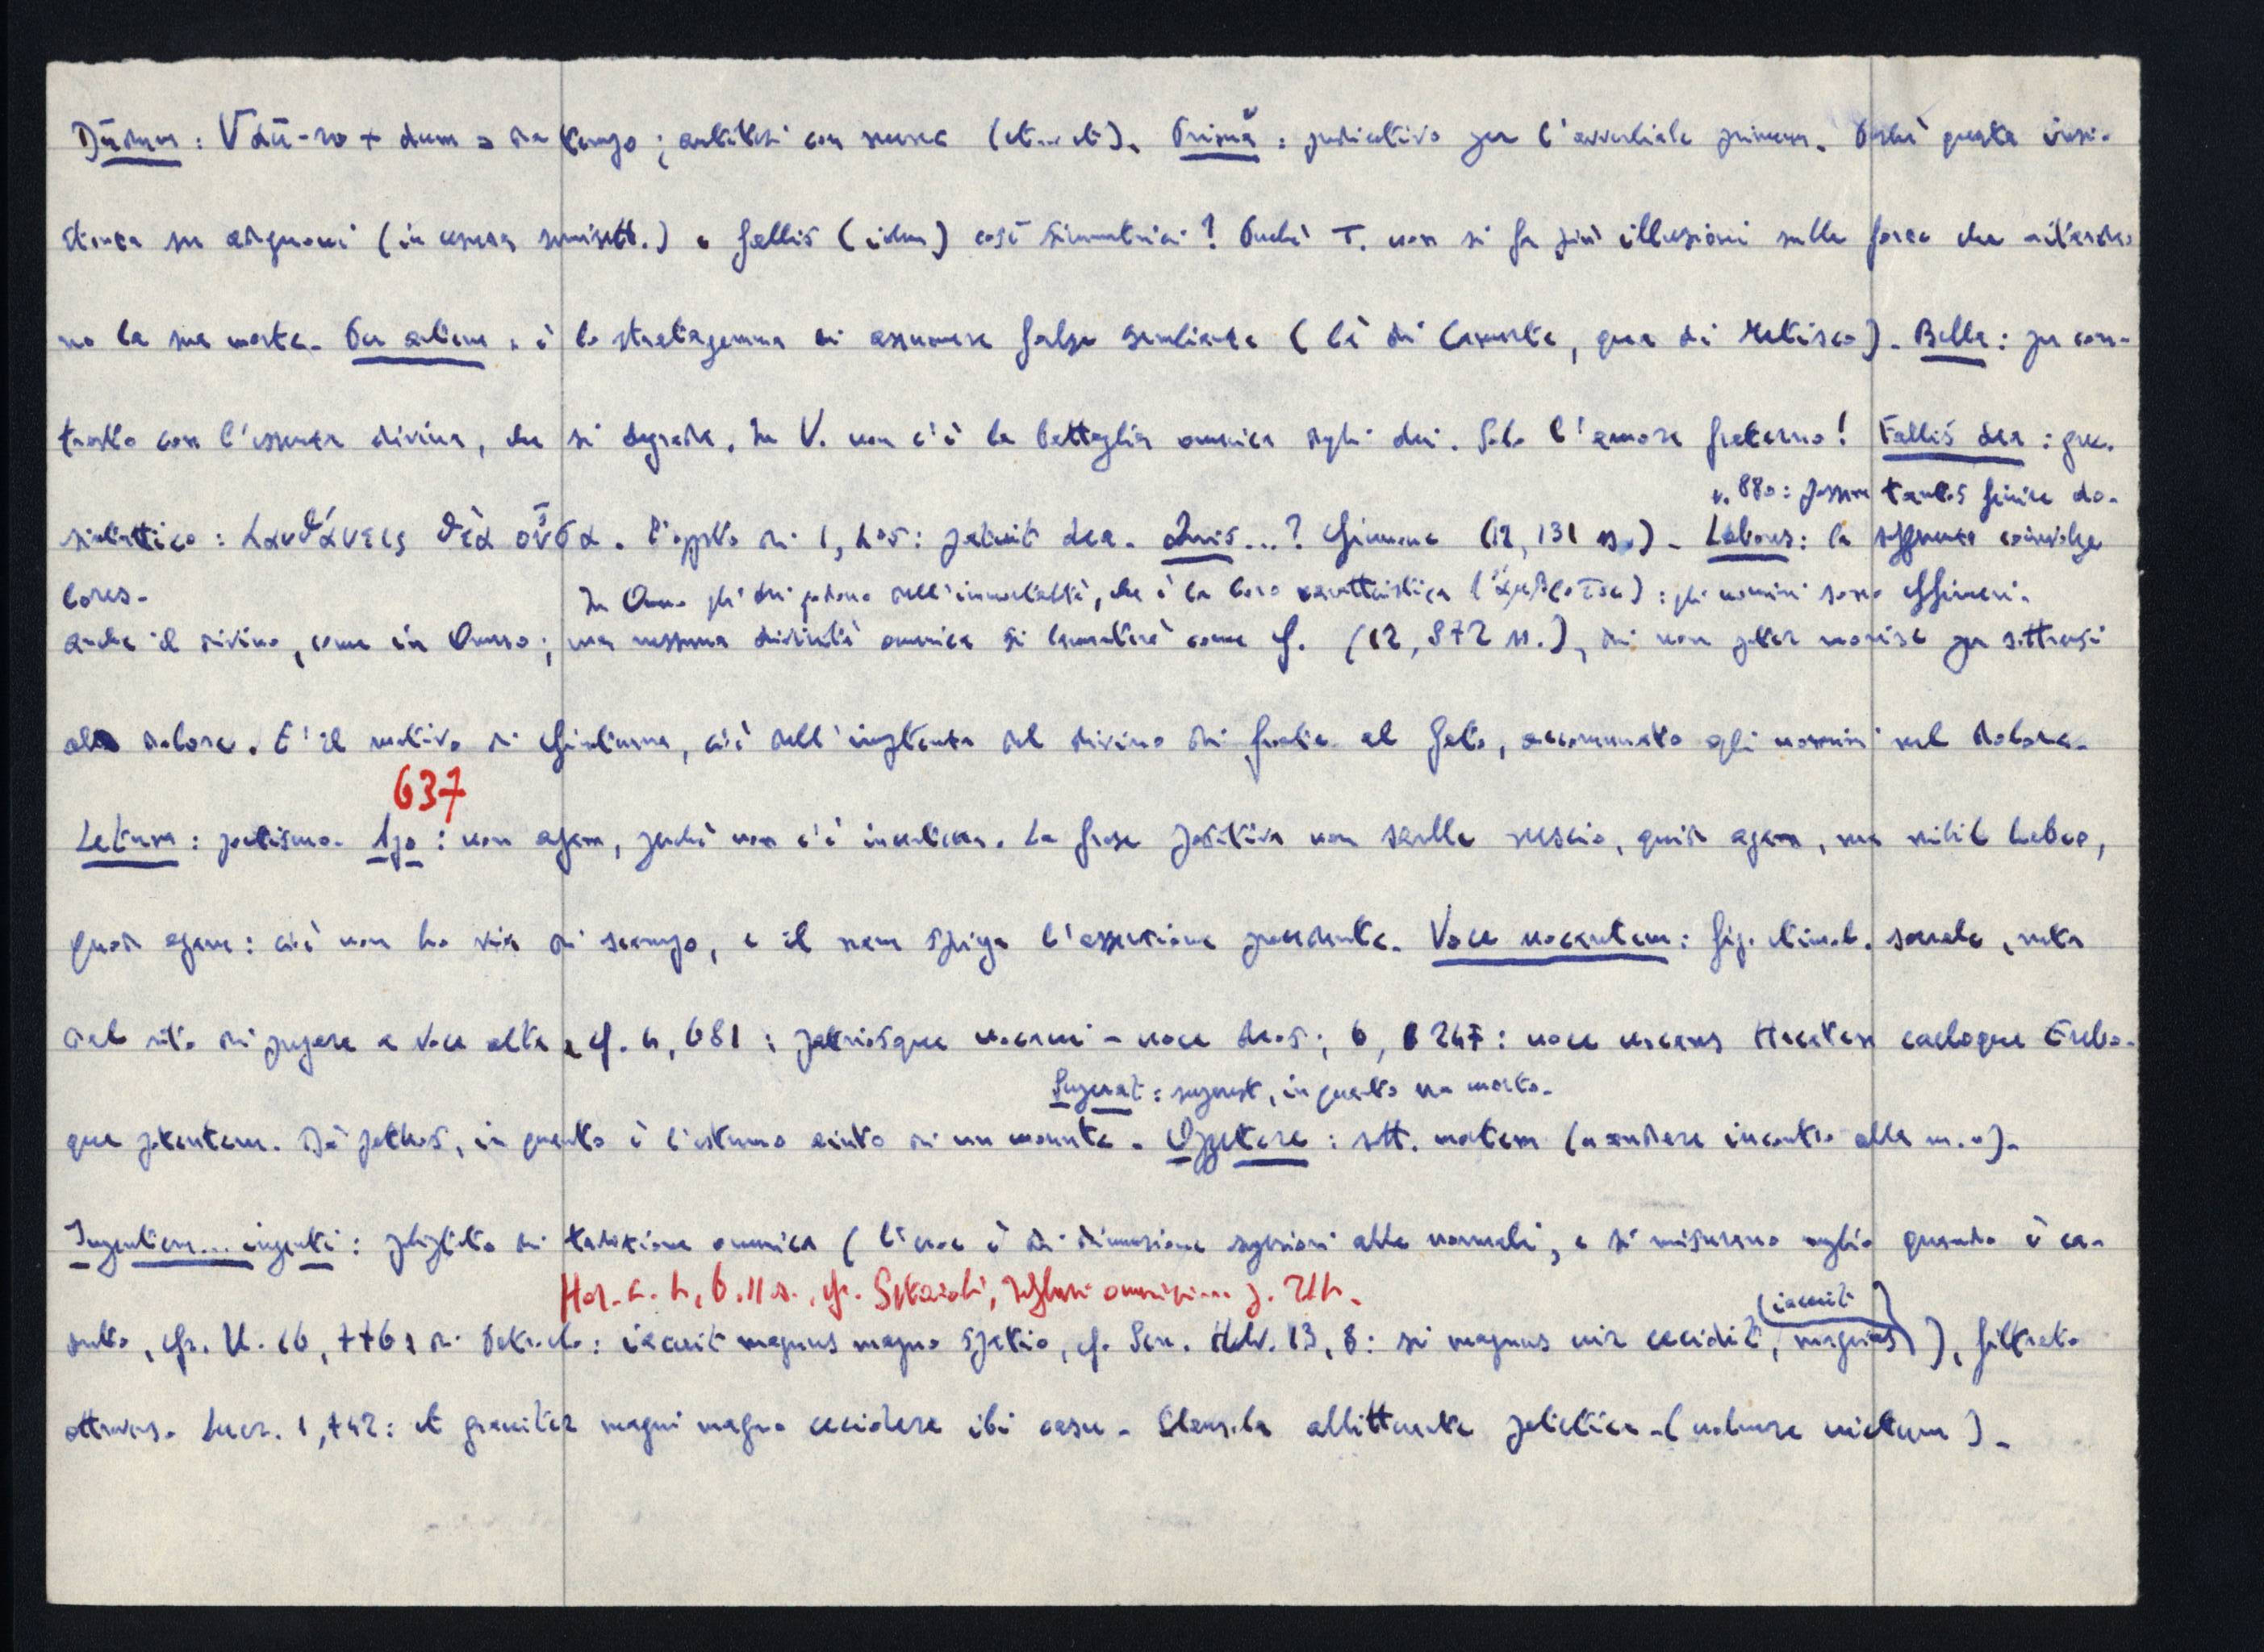 Dūdum: √dū-ro + dum = da tempo; antitesi con nunc (et... et). Primă: predicativo per l'avverbiale primum. Perché questa insi-
stenza su adgnoui (in cesura semisett.) e fallis (idem) così simmetrici? Perché T. non si fa più illusioni sulle forze che ritarda-
no la sua morte. Per artem: è lo stratagemma di assumere false sembianze (là di Camerte, qua di Metisco). Bella: per con-
trasto con l'essenza divina, che si degrada. In V. non c'è la battaglia omerica degli dei. Solo l'amore fraterno! Fallis dea: grec.
v. 880: possem tantos finire do-
sintattico: λανθάνεις θεὰ οὖσα. L'opposto di 1, 405: patuit dea. Quis...? Giunone (12, 131 ss.). Labores: la sofferenza coinvolge
lores.
In Omero gli dei godono dell'immortalità, che è la loro caratteristica (ἄμβροτοι): gli uomini sono effimeri.
anche il divino, come in Omero; ma nessuna divinità omerica si lamenterà come G. (12, 872 ss.), di non poter morire per sottrarsi
al dolore. E' il motivo di Giuturna, cioè dell'impotenza del divino di fronte al fato, accomunato agli uomini nel dolore.
637
Letum: poetismo. Ago: non agam, perché non c'è incertezza. La frase positiva non sarebbe nescio, quid agam, ma nihil habeo,
quod agam: cioè non ho via di scampo, e il nam spiega l'asserzione precedente. Voce uocantem: fig. etimol. sacrale, nata
dal rito di pregare a voce alta, cf. 4, 681: patriosque uocaui - uoce deos; 6, 247: uoce uocans Hecaten caeloque Erebo-
Superat: superest, in quanto era morto.
que potentem. Dà pathos, in quanto è l'estremo aiuto di un morente. Oppetere: sott. mortem (andare incontro alla m.).
Ingentem... ingenti: poliptoto di tradizione omerica (l'eroe è di dimensione superiori alla normale, e si misurano meglio quando è ca-
Hor. c. 4, 6, 11 s., cf. Setaioli, omerici p. 214.
duto, cfr. Il. 16, 776 di Patroclo: iacuit magnus magno spatio, cf. Sen. Helv. 13, 8: si magnus uir cecidit, magnus (iacuit)), filtrato
attraverso Lucr. 1, 742: et grauiter magni magno cecidere ibi casu. Clausola allitterante patetica (uolnere uictum).